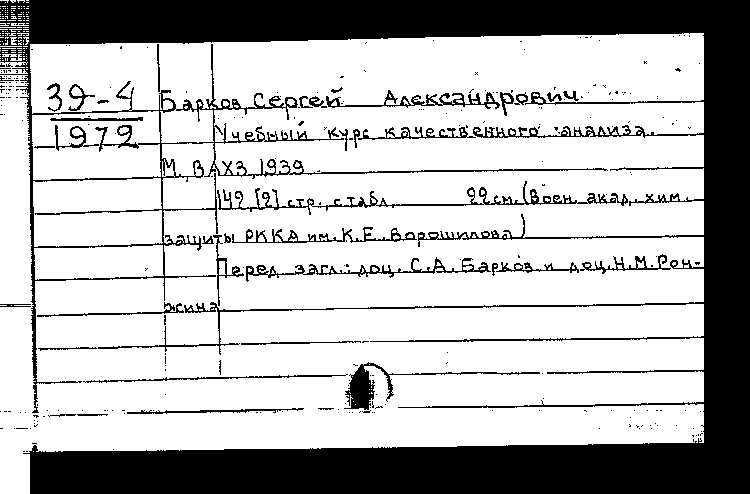 39-4
1972
Барков, Сергей Александрович.
Учебный курс качественного анализа.
М., ВАХЗ, 1939
142, [2] стр., с табл. 22 см. (Воен. акад. хим.
защиты РККА им. К.Е. Ворошилова)
Перед загл.: доц. С.А. Барков и доц. Н.М. Рон-
жина